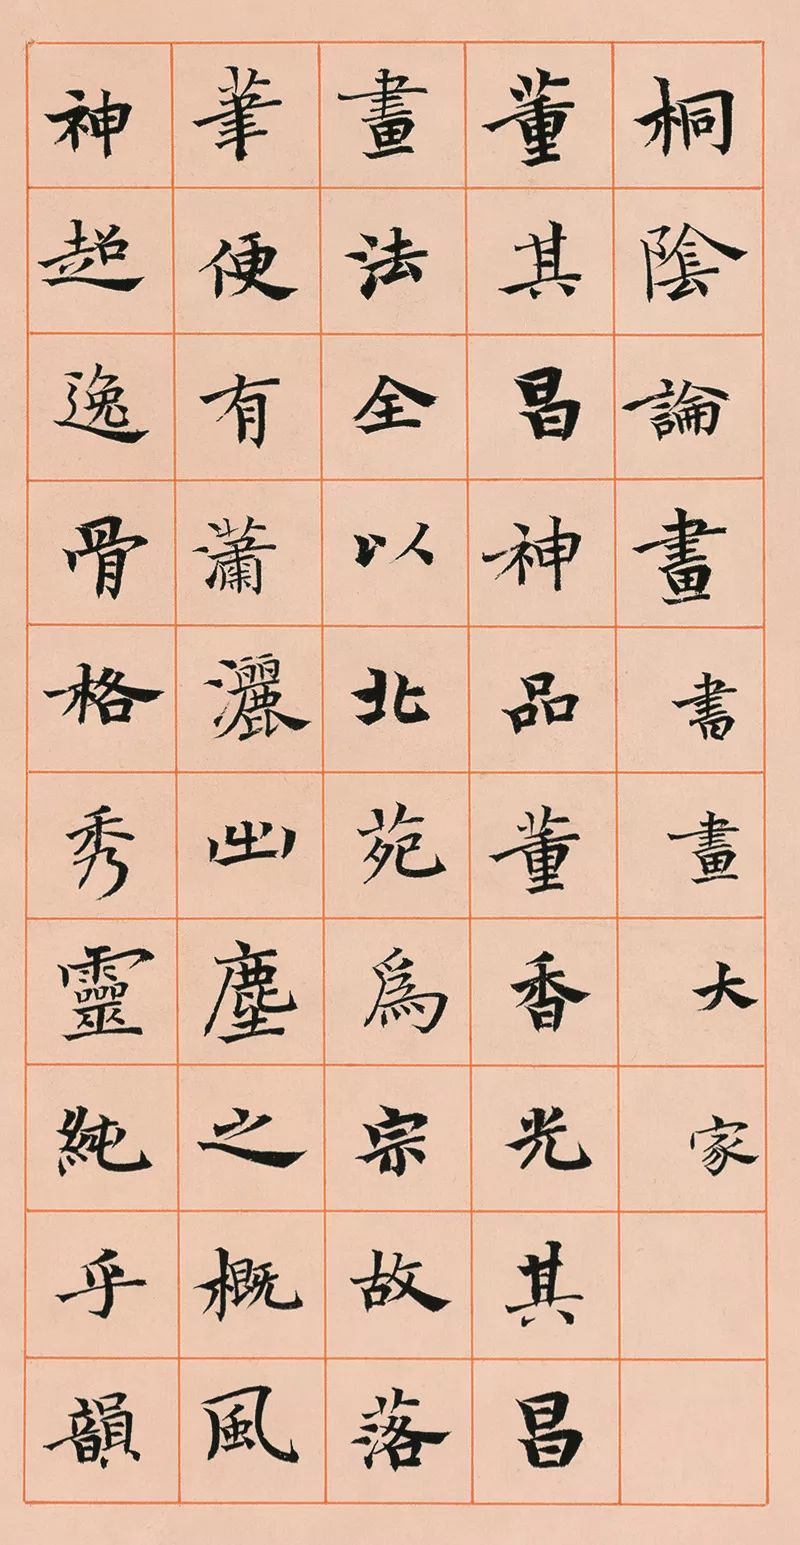 桐陰論畫書畫大家
董其昌神品董香光其昌
畫法全以北苑爲宗故落
筆便有瀟灑出塵之概風
神超逸骨格秀靈純乎韻